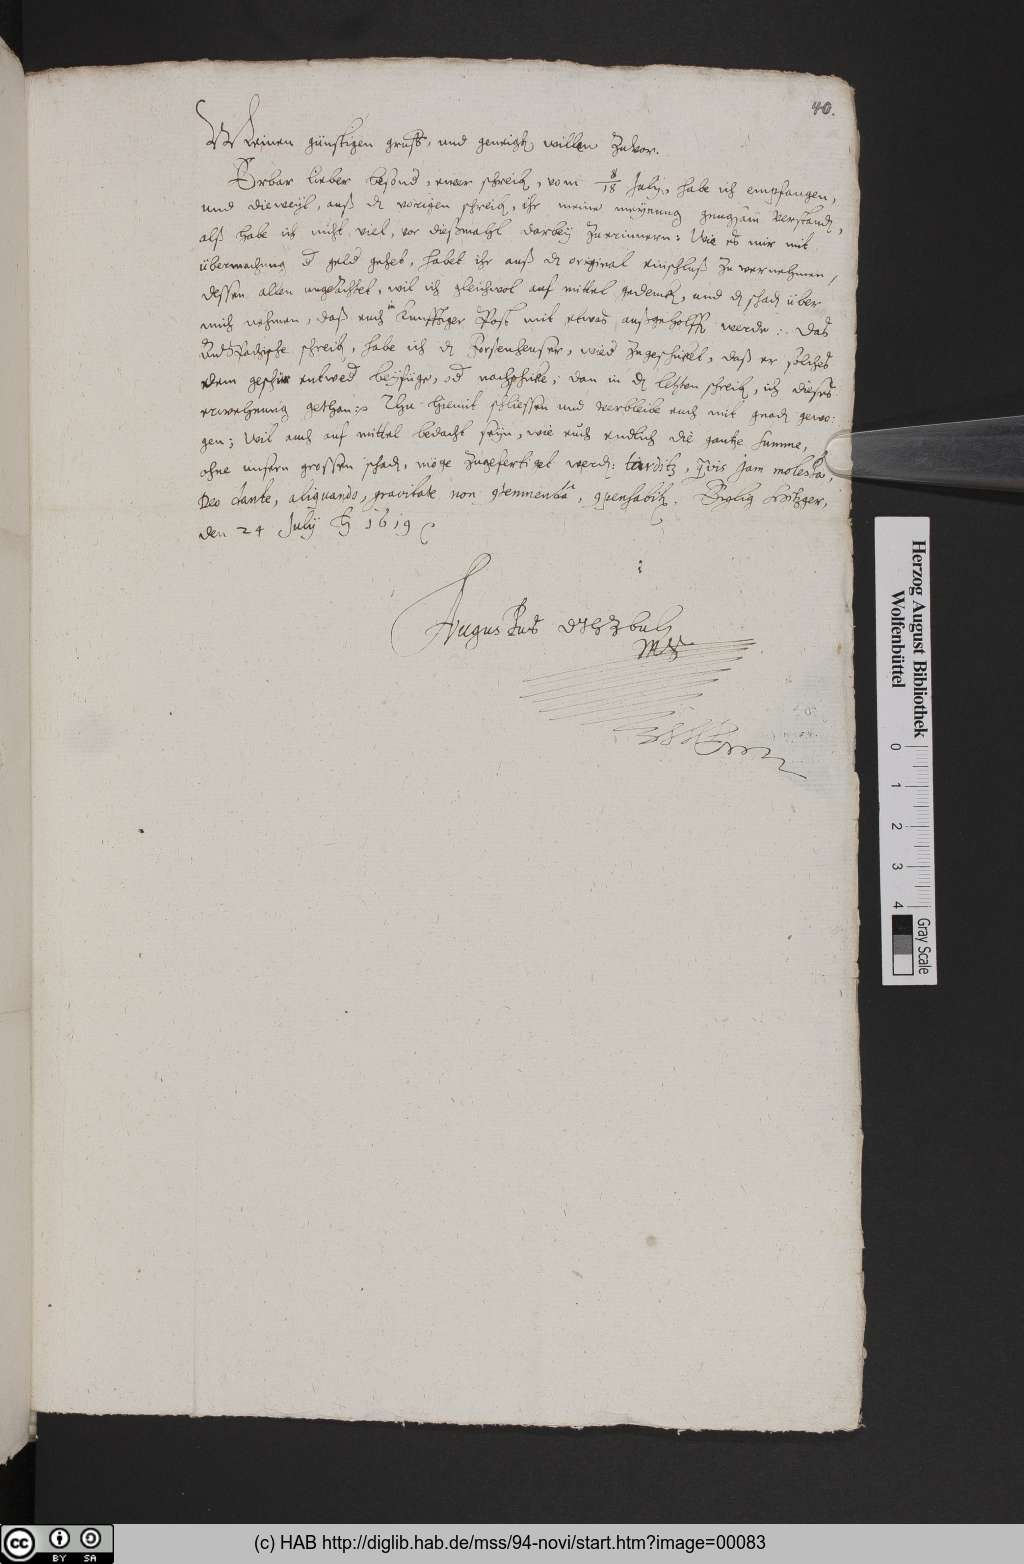 40.
Meinen günstigen gruß, und geneigt willen zuvor.
Erbar lieber besond, ewer schreib, vom 8/18 July, habe ich empfangen,
und dieweyl, auß d vorigen schreib, ihr meine meynung gnugsam verstand,
alß habe ich nicht viel, vor dießmahl darbey zu erinnern: Wie es mir mit
übermachung d geld gehet, habet ihr auß d original einschluß zu vernehmen,
dessen allen ungeachtet, wil ich gleichwol auf mittel gedenck, und d schad über
mich nehmen, daß euch in kunfftiger Post mit etwas außgeholff werde: Das
schreib, habe ich d wied zugeschicket, daß er solches
dem entwed beyfüge, od nachschicke; dan in d letzten schreib, ich dieses
erwehnung gethan: Thu hiemit schliessen und verbleibe euch mit gnad gewo-
gen; Wil auch auf mittel bedacht seyn, wie euch endlich die gantze summe,
ohne unsern grossen schad, möge zugefertiget werd: tarditz, qvis jam molesta,
Deo dante, aliquando, gravitate non
den 24 July 1619
Augustus
Herzog August Bibliothek
Wolfenbüttel
0 1 2 3 4
Gray Scale
cc BY SA
(c) HAB http://diglib.hab.de/mss/94-novi/start.htm?image=00083